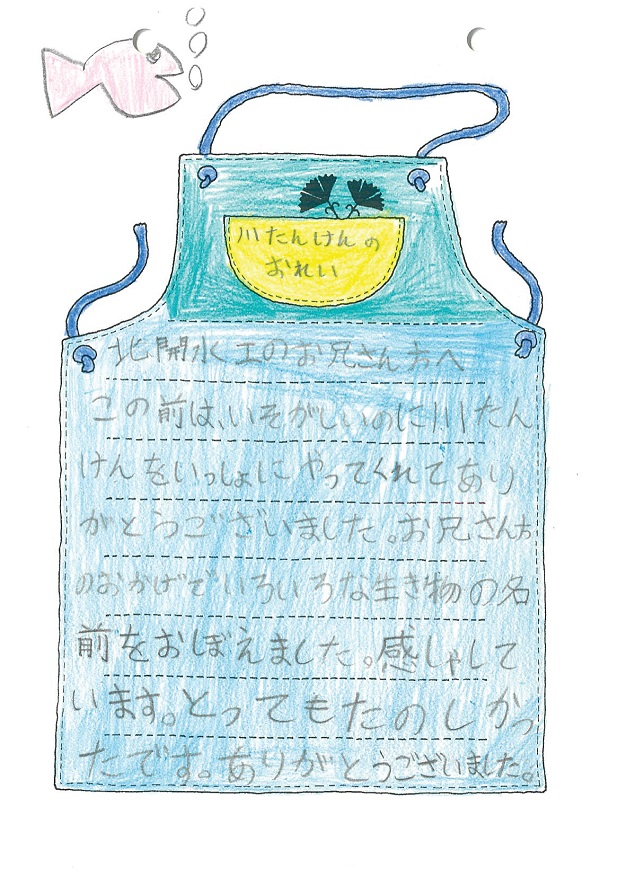 川たんけんの
おれい
北開水工のお兄さん方へ
この前は、いそがしいのに川たん
けんをいっしょにやってくれてあり
がとうございました。お兄さん方
のおかげでいろいろな生き物の名
前をおぼえました。感しゃして
います。とってもたのしかっ
たです。ありがとうございました。